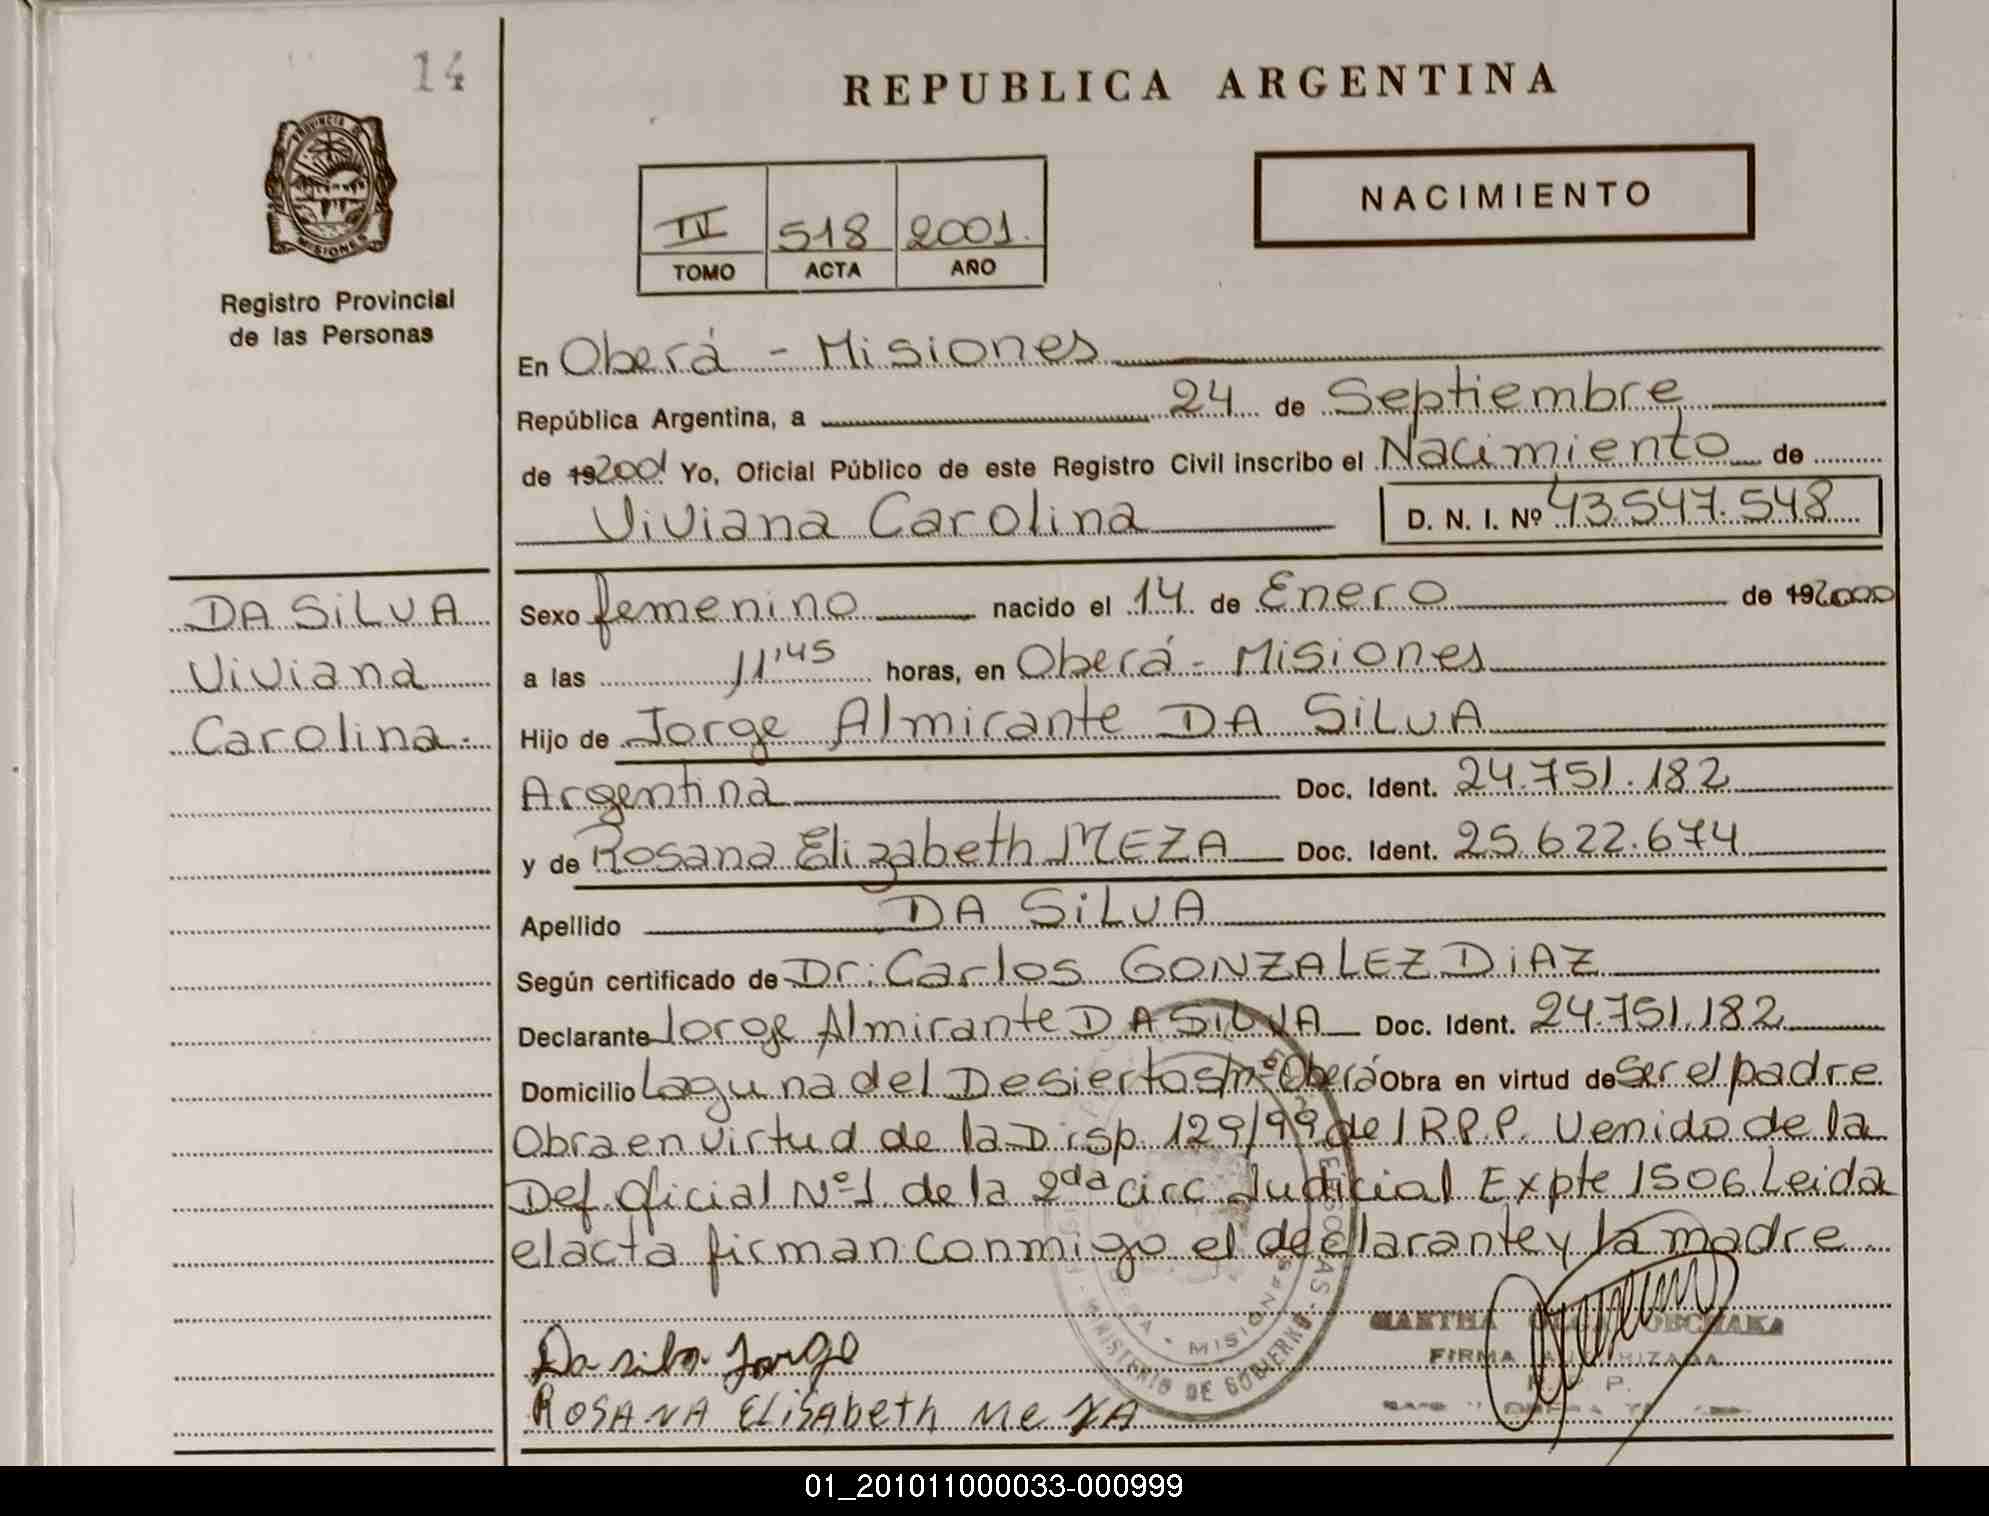 14
REPUBLICA ARGENTINA
PROVINCIA DE
MISIONES
Registro Provincial
de las Personas
NACIMIENTO
IV 518 2001.
TOMO ACTA AÑO
En Oberá - Misiones
República Argentina, a 24 de Septiembre
de 19 2001 Yo, Oficial Público de este Registro Civil inscribo el Nacimiento de
Viviana Carolina D. N. I. Nº 43.547.548
DA SiLVA
Viviana
Carolina.
Sexo femenino nacido el 14 de Enero de 19 2000
a las 11'45 horas, en Oberá - Misiones
Hijo de Jorge Almirante DA SiLVA
Argentina Doc. Ident. 24.751.182
y de Rosana Elizabeth MEZA Doc. Ident. 25.622.674
Apellido DA SiLVA
Según certificado de Dr. Carlos GONZALEZ DiAZ
Declarante Jorge Almirante DA SiLVA Doc. Ident. 24.751.182
Domicilio Laguna del Desierto s/nº Oberá Obra en virtud de Ser el padre
Obra en virtud de la Disp. 129/99 del R.P.P. Venido de la
Def. Oficial Nº1 de la 2da circ Judicial Expte 1506 Leida
el acta firman conmigo el declarante y la madre
MINISTERIO DE GOBIERNO
MISIONES
MARTHA OLGA
FIRMA AUTORIZADA
R. P. P.
Da silva Jorge
ROSANA ELiSAbeTh MeZA
01_201011000033-000999